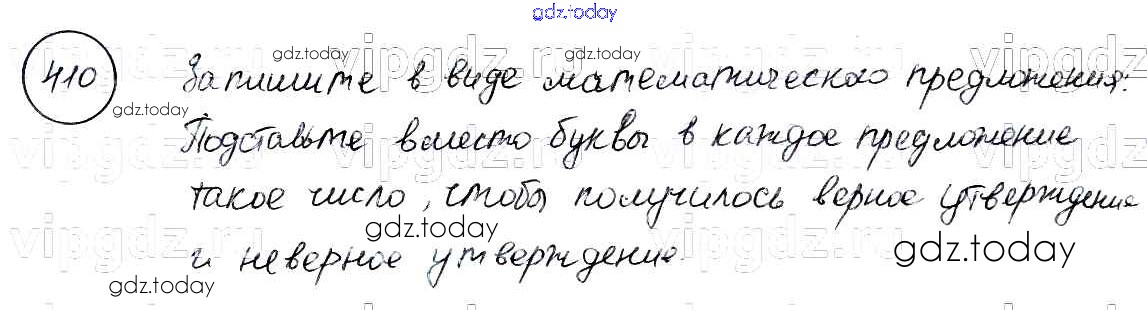 gdz.today
410 Запишите в виде математического предложения:
gdz.today
gdz.today
gdz.today
Подставьте вместо буквы в каждое предложение
такое число, чтобы получилось верное утверждение
gdz.today
gdz.today
и неверное утверждение.
gdz.today
vipgdz.ru